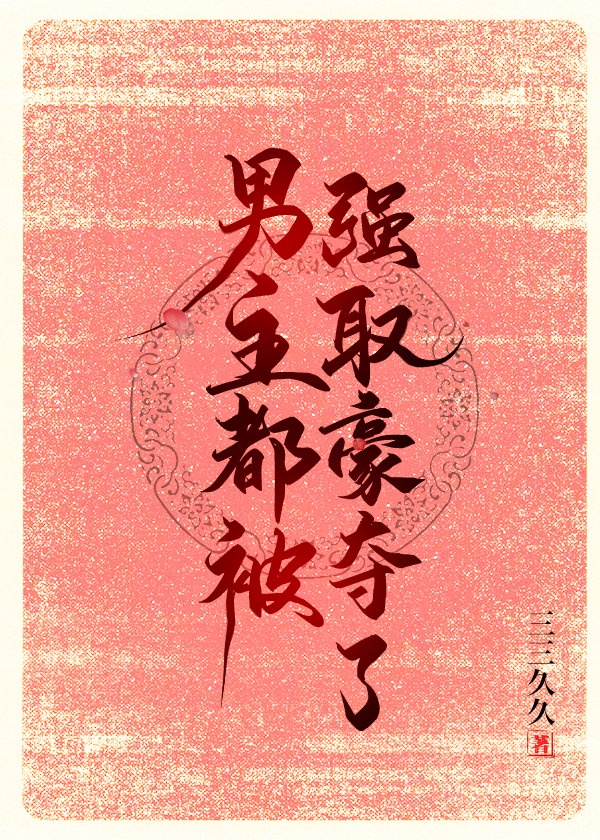 男主都被
强取豪夺了
三三久久
著